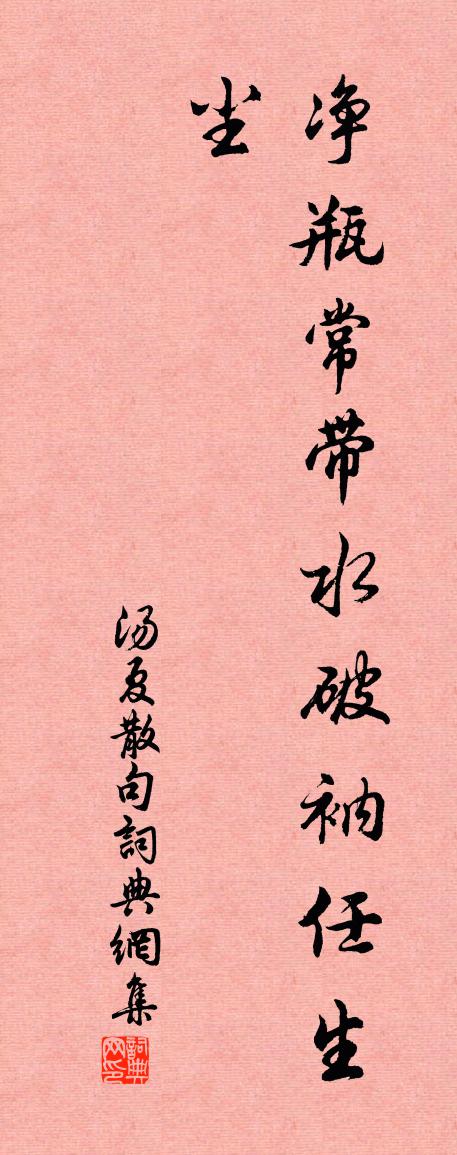 净瓶常带水破衲任生
尘
汤夏散句詞典網集
詞典
网印